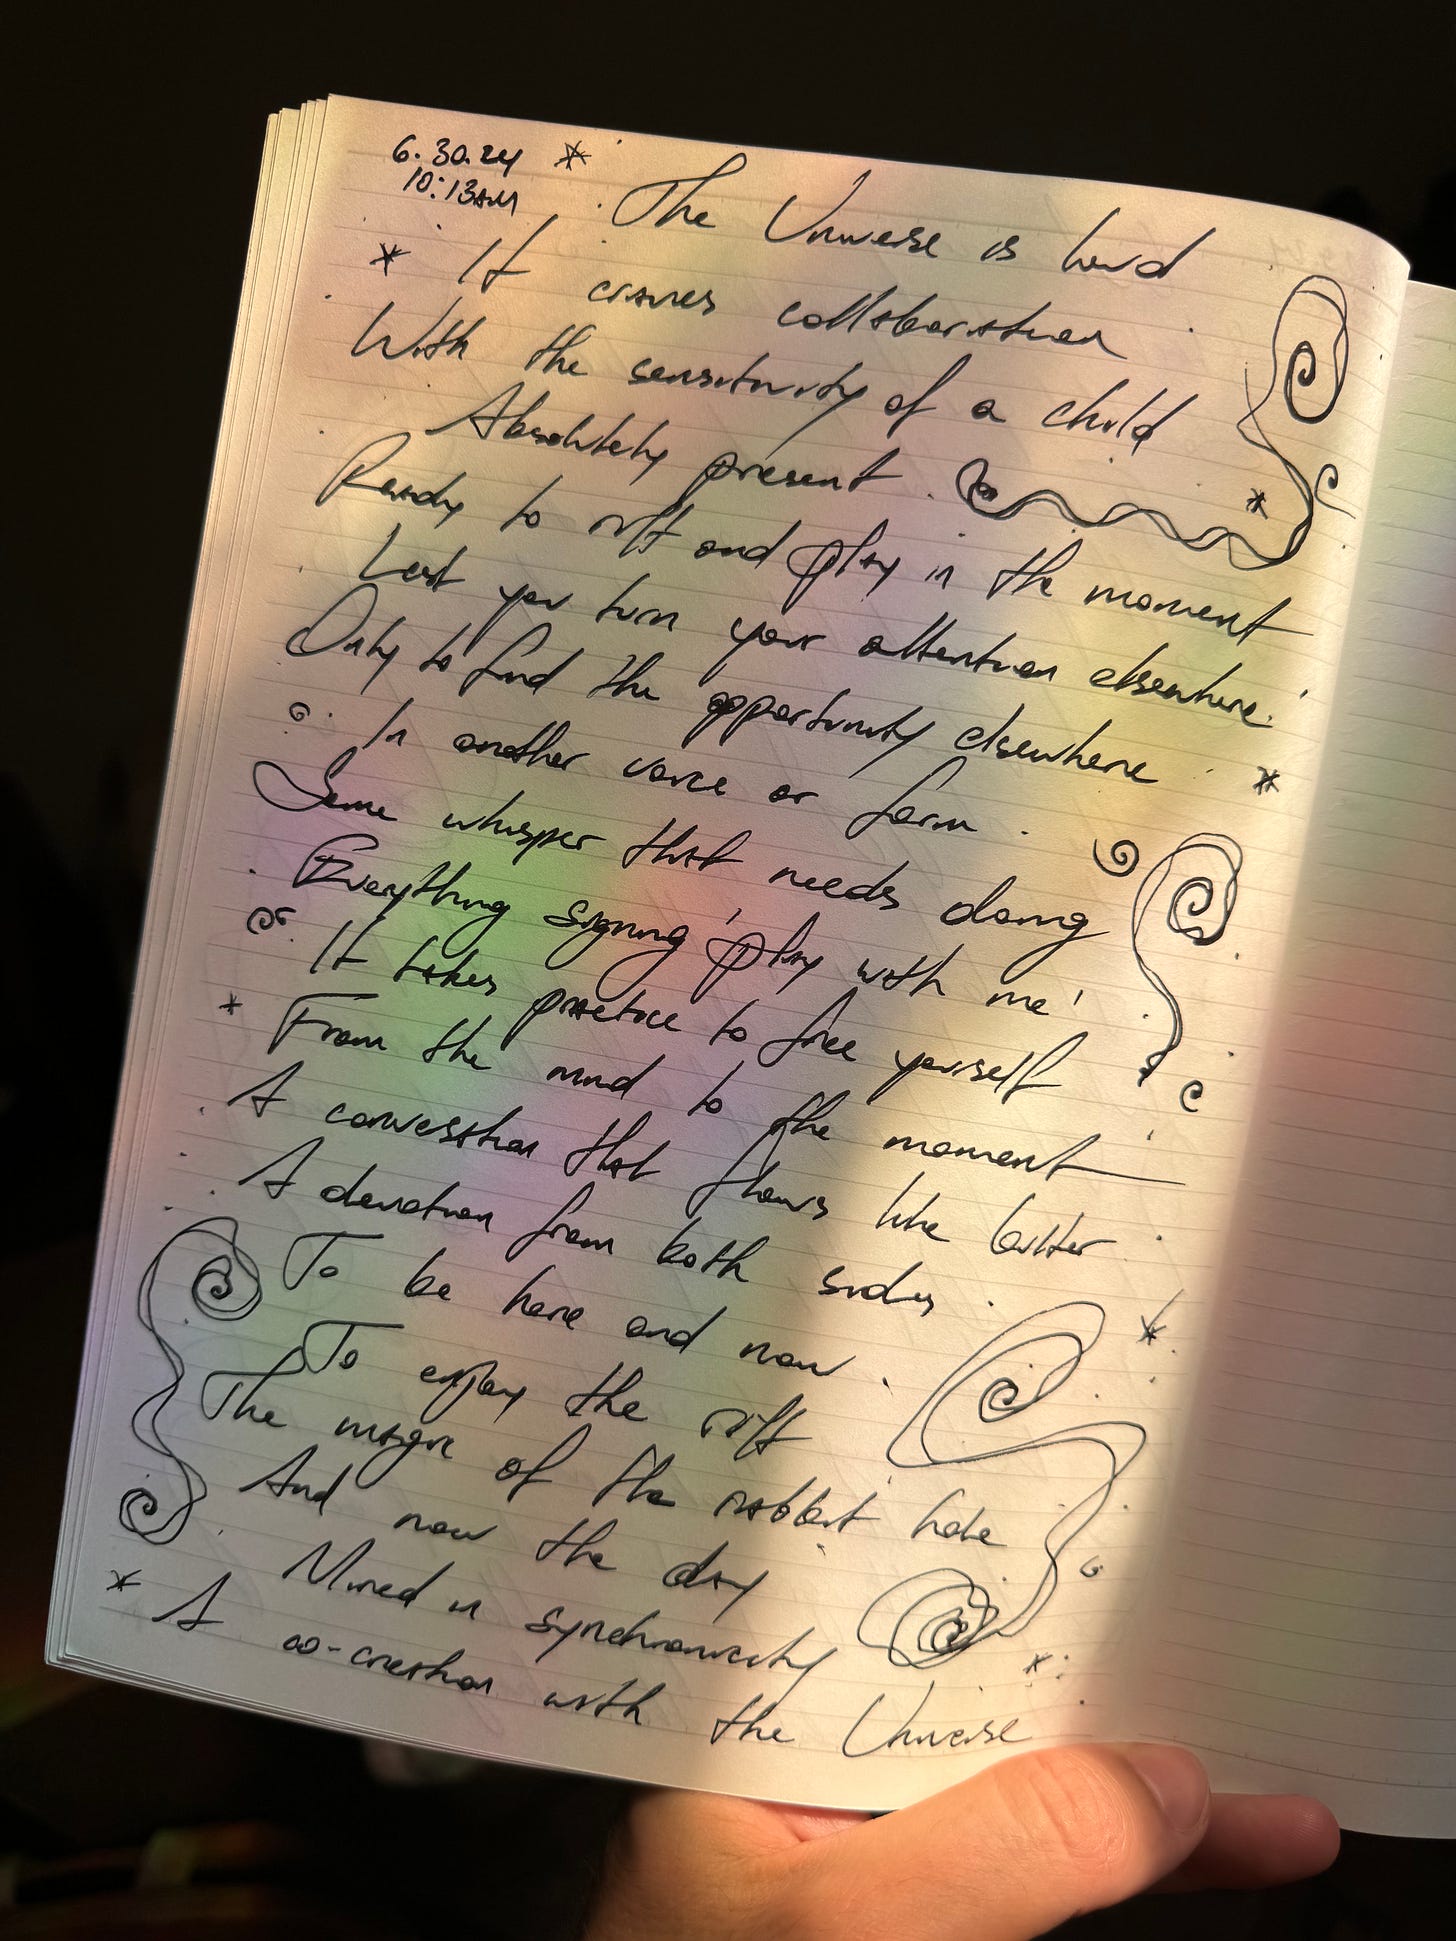 6.30.24
10:13AM
The Universe is
It craves collaboration
With the sensitivity of a child
Absolutely present.
Ready to riff and play in the moment
Lest you turn your attention elsewhere.
Only to find the opportunity elsewhere
In another voice or form.
Some whisper that needs doing
Everything signing 'play with me'
It takes practice to free yourself
From the mind to the moment
A conversation that flows like butter
A devotion from both sides.
To be here and now.
To enjoy the riff
The magic of the rabbit hole
And now the day
Mired in synchronicity
A co-creation with the Universe